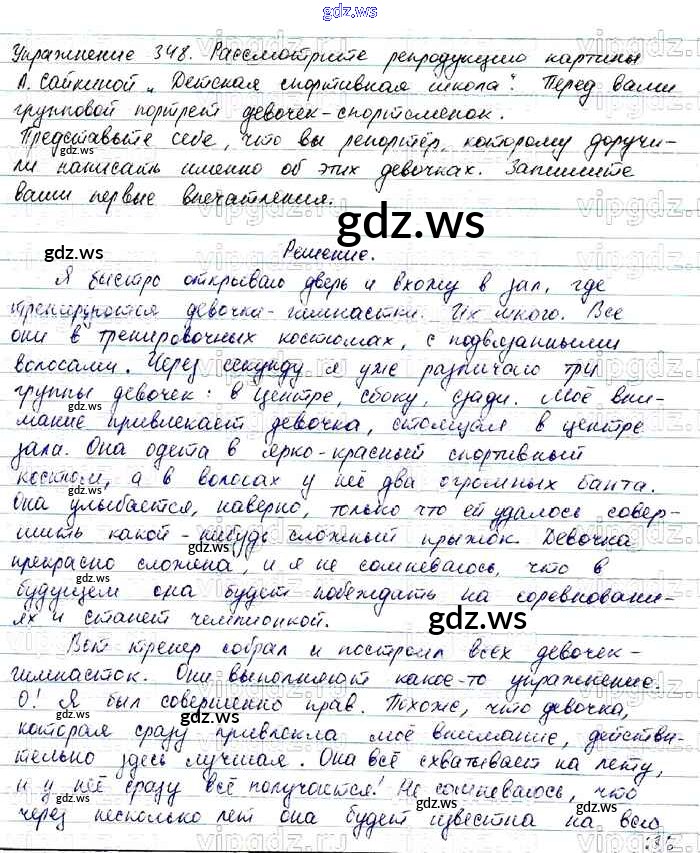 gdz.ws
Упражнение 348. Рассмотрите репродукцию картины
А. Сайкиной „Детская спортивная школа". Перед вами
групповой портрет девочек-спортсменок.
Представьте себе, что вы репортёр, которому доручи-
ли написать именно об этих девочках. Запишите
ваши первые впечатления.
gdz.ws
gdz.ws
Решение.
Я быстро открываю дверь и вхожу в зал, где
тренируются девочки-гимнастки. Их много. Все
они в тренировочных костюмах, с подвязанными
волосами. Через секунду я уже различаю три
группы девочек: в центре, сбоку, сзади. Моё вни-
gdz.ws
мание привлекает девочка, стоящая в центре
зала. Она одета в ярко-красный спортивный
костюм, а в волосах у неё два огромных банта.
gdz.ws
Она улыбается, наверно, только что ей удалось совер-
шить какой-нибудь сложный прыжок. Девочка
прекрасно сложена, и я не сомневаюсь, что в
будущем она будет побеждать на соревновани-
ях и станет чемпионкой.
gdz.ws
Вот тренер собрал и построил всех девочек-
гимнасток. Они выполняют какое-то упражнение.
О! Я был совершенно прав. Похоже, что девочка,
gdz.ws
которая сразу привлекла моё внимание, действи-
тельно здесь лучшая. Она всё схватывает на лету,
и у неё сразу всё получается! Не сомневаюсь, что
gdz.ws
через несколько лет она будет известна на весь